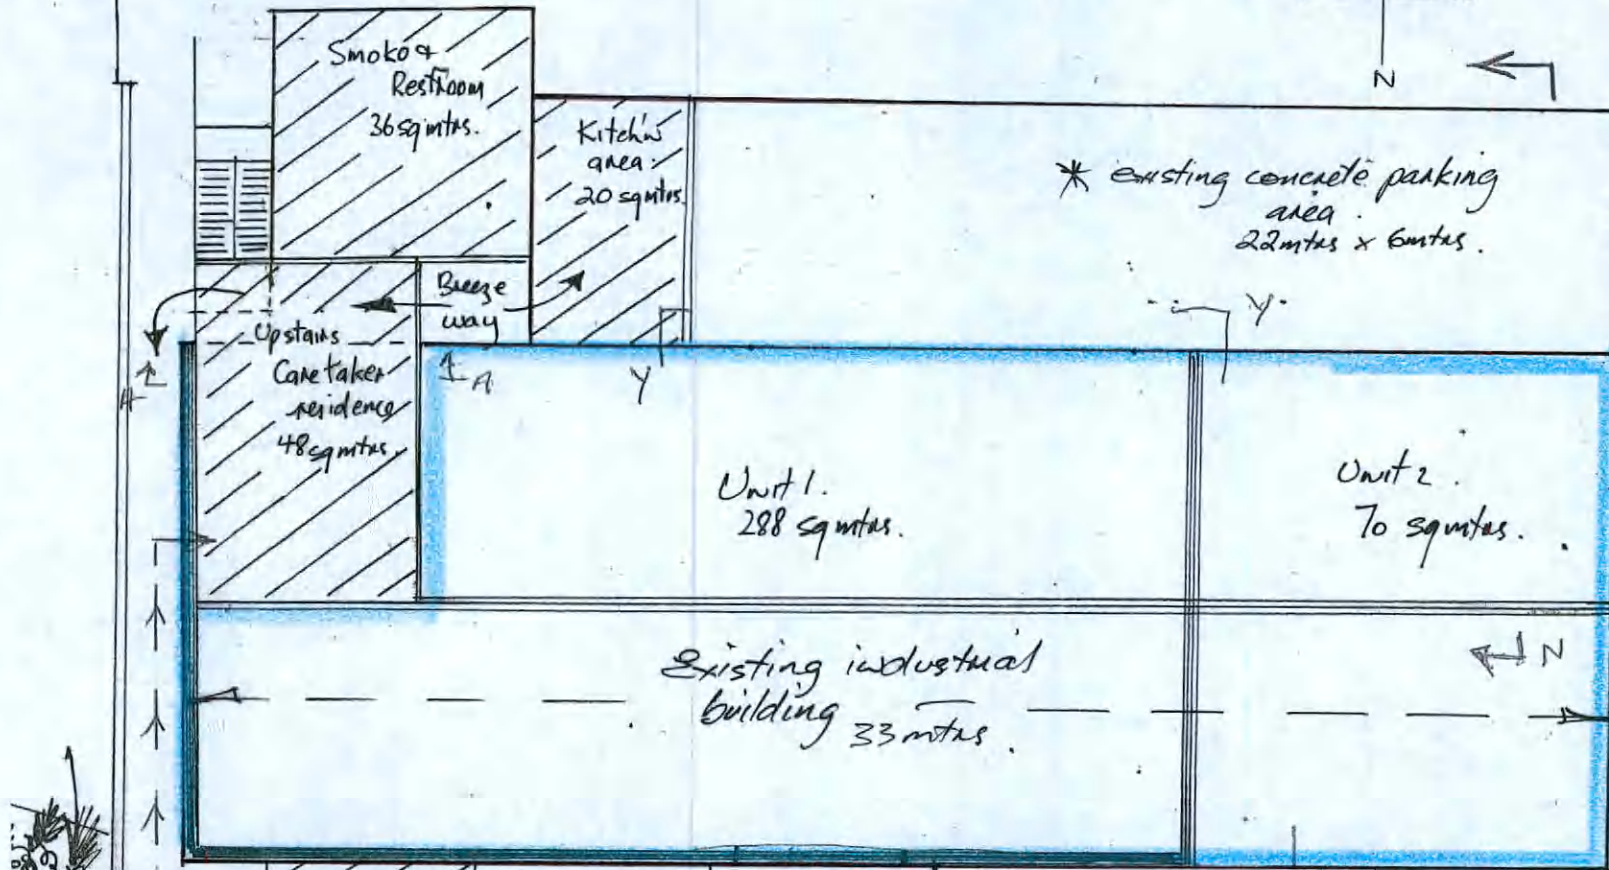 Smoko &
Restroom
36 sqmtrs.
Kitch'n
area:
20 sqmtrs.
N
* existing concrete parking
area.
22mtrs x 6mtrs.
Breeze
way
Y
Upstairs
Caretaker
residence
48sqmtrs.
A
A
Y
Unit 1.
288 sqmtrs.
Unit 2.
70 sqmtrs.
N
Existing industrial
building
33 mtrs.